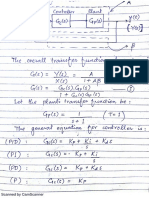 Controller Plant A
Gc(s) Gp(s) y(t)
[Y(s)]
B
The overall transfer function
G(s) = Y(s) = A
X(s) 1 + AB
G(s) = Gc(s).Gp(s)
1 + Gc(s).Gp(s)
Let the plants transfer function be:
Gp(s) = 1
The general equation for controller is:
(PID): Gc(s) = Kp + Ki + Kds
s
(PI): Gc(s) = Kp + Ki
s
(PD): Gc(s) = Kp + Kds
(P): Gc(s) = Kp
Scanned by CamScanner